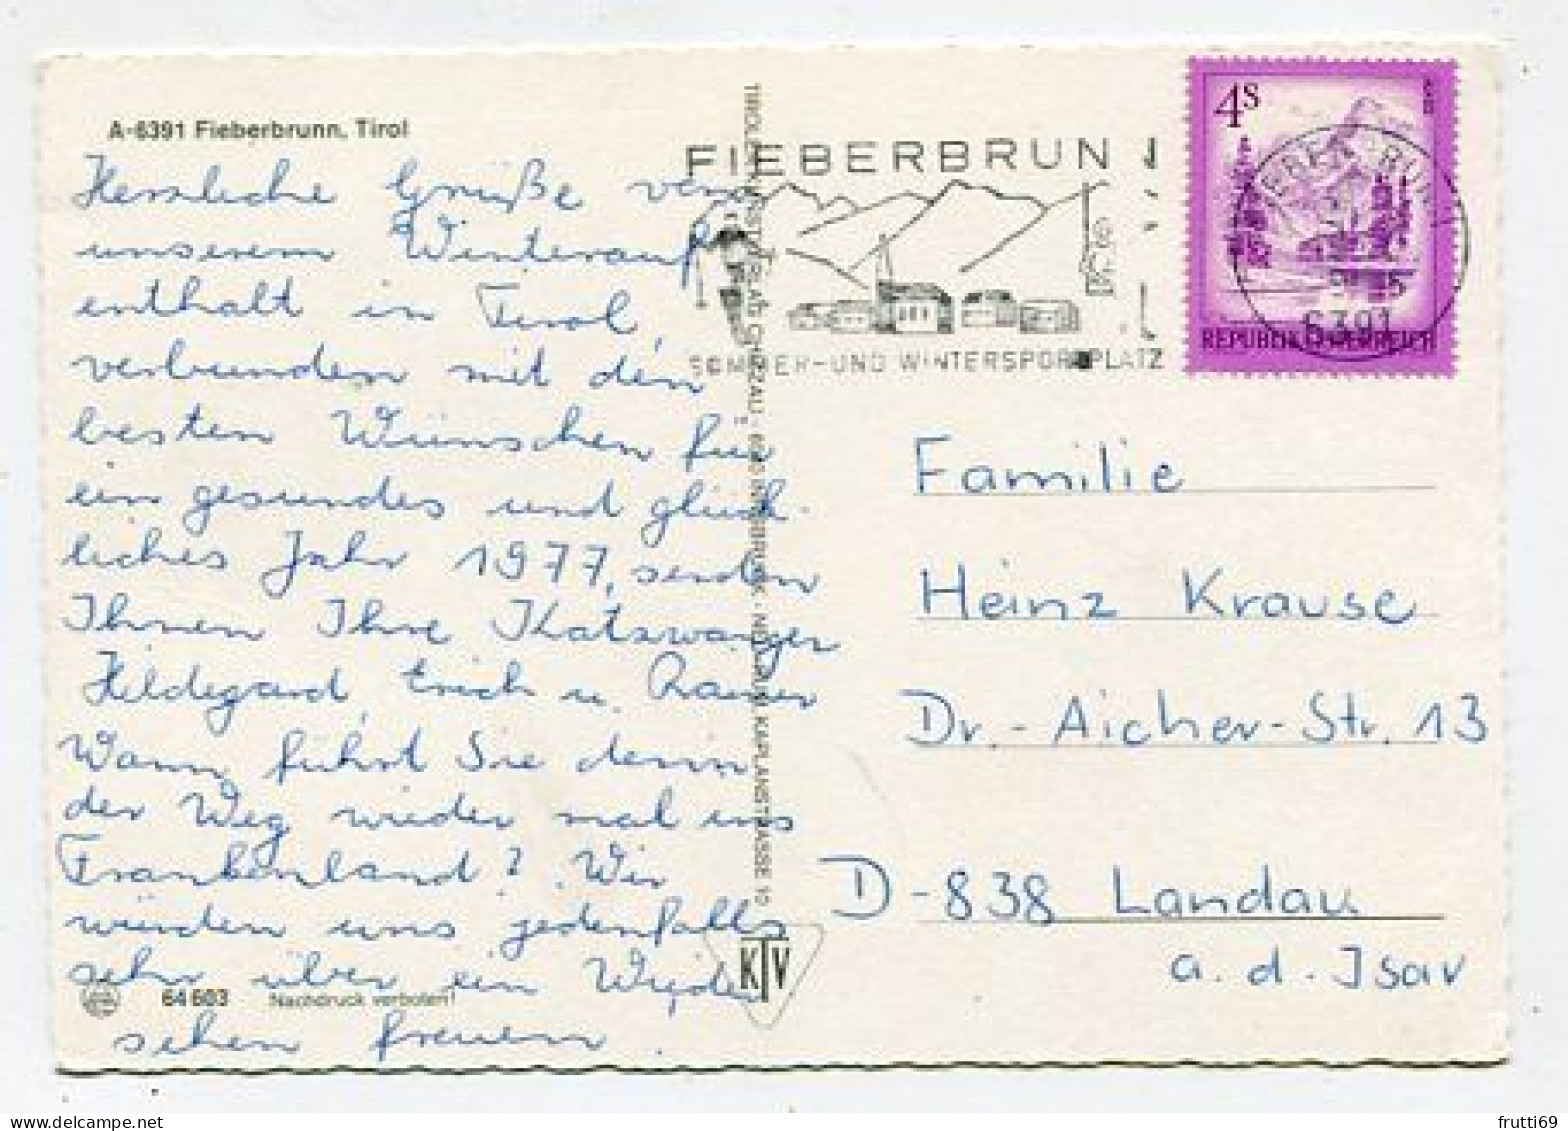 A-6391 Fieberbrunn, Tirol
Herzliche Grüße von
unserem Winterauf-
enthalt in Tirol,
verbunden mit den
besten Wünschen für
ein gesundes und glück-
liches Jahr 1977, senden
Ihnen Ihre Katswanger
Hildegard, Erich u. Rainer
Wann führt Sie denn
der Weg wieder mal ins
Frankenland? Wir
würden uns jedenfalls
sehr über ein Wieder
sehen freuen.
64 603 Nachdruck verboten!
KTV
FIEBERBRUNN
SOMMER-UND WINTERSPORTPLATZ
4S
6391
REPUBLIK ÖSTERREICH
Familie
Heinz Krause
Dr.-Aicher-Str. 13
D-838 Landau
a.d. Isar
frutti69